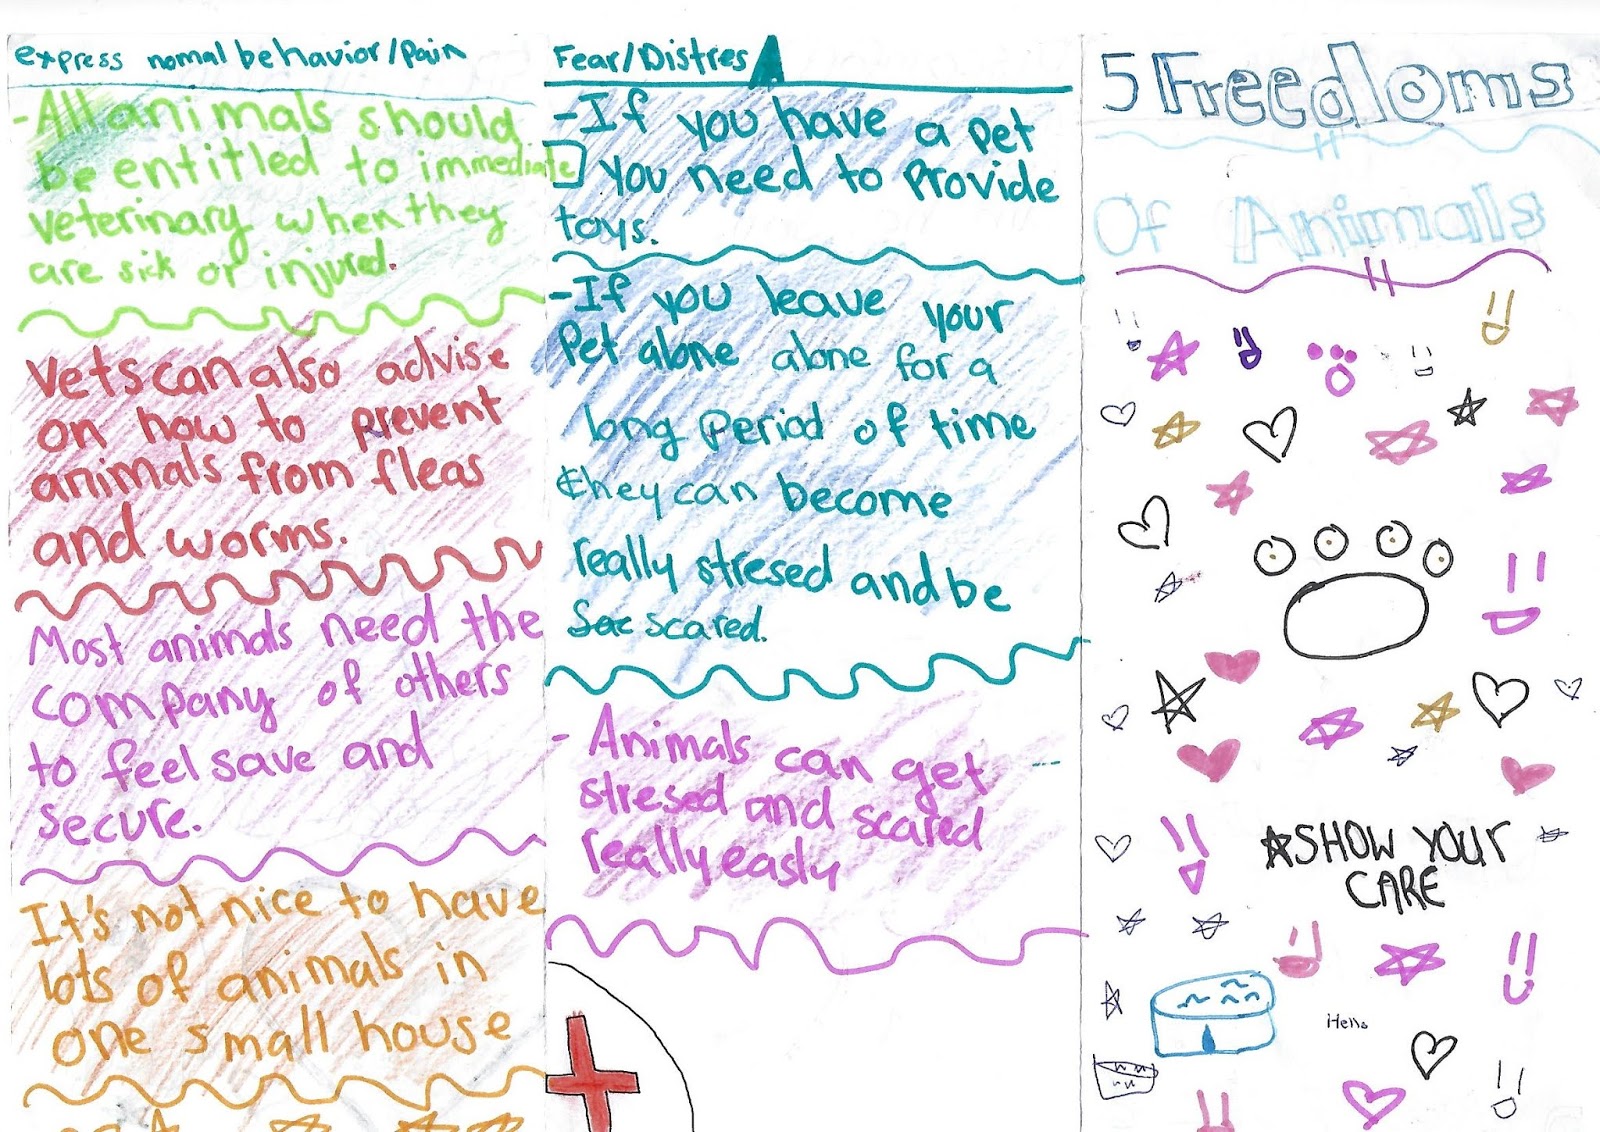 express nomal behavior/Pain
-All animals should
be entitled to immediate
veterinary when they
are sick or injured.
Vets can also advise
on how to prevent
animals from fleas
and worms.
Most animals need the
company of others
to feel save and
secure.
It's not nice to have
lots of animals in
one small house
Fear/Distres
-If you have a pet
you need to Provide
toys.
-If you leave your
Pet alone alone for a
long Period of time
they can become
really stresed and be
scared.
- Animals can get
stresed and scared
really easly
5 Freedoms
Of Animals
SHOW YOUR
CARE
Hello